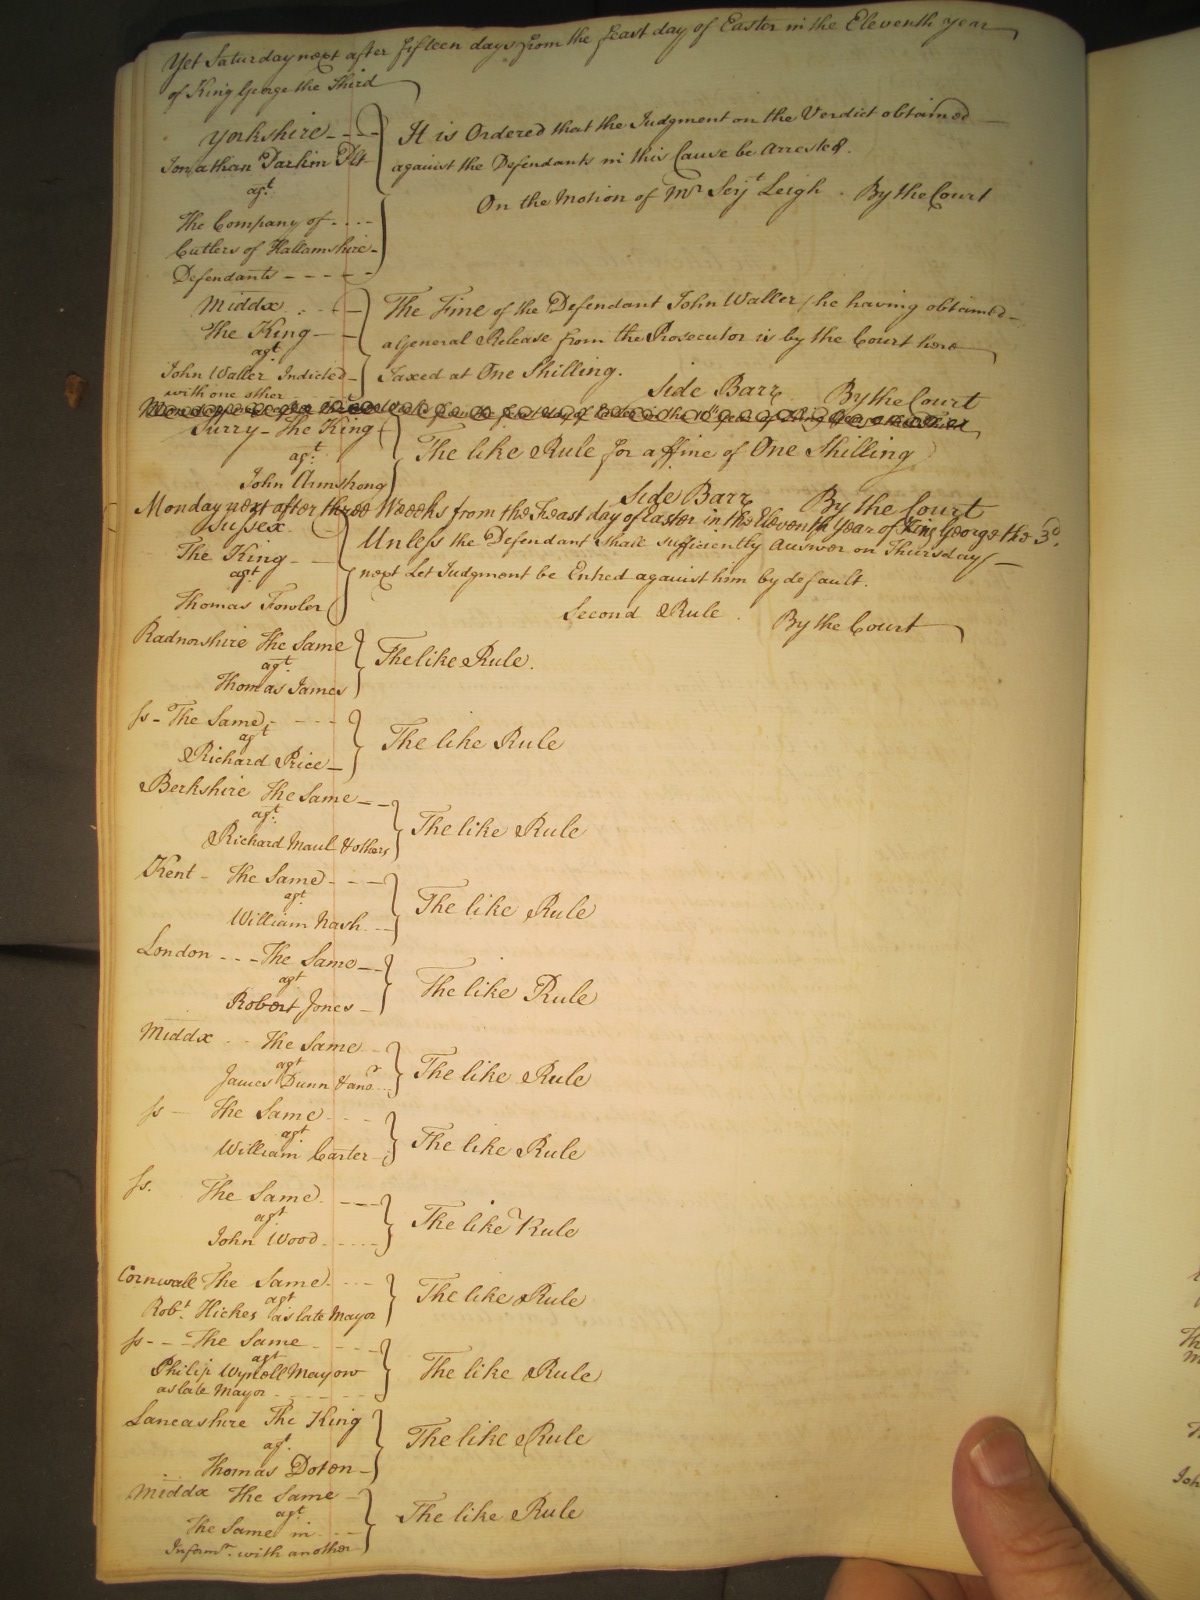 Yet Saturday next after fifteen days from the feast day of Easter in the Eleventh year
of King George the Third
Yorkshire
Jonathan Parkin Plt
agt.
The Company of
Cutlers of Hallamshire
Defendants
It is Ordered that the Judgment on the Verdict obtained
against the Defendants in this Cause be Arrested.
On the Motion of Mr Serjt Leigh. By the Court
Middx
The King
agt
John Waller Indicted
with one other
The Fine of the Defendant John Waller (he having obtained
a General Release from the Prosecutor is by the Court here
Taxed at One Shilling.
Side Barr By the Court
Surry The King
agt.
John Armstrong
The like Rule for a ffine of One Shilling
Side Barr By the Court
Monday next after three Weeks from the Feast day of Easter in the Eleventh Year of King George the 3d.
Sussex
The King
agt
Thomas Fowler
Unless the Defendant shall sufficiently Answer on Thursday
next Let Judgment be Entred against him by default.
Second Rule. By the Court
Radnorshire The Same
agt.
Thomas James
The like Rule.
Ss - The Same
agt
Richard Price
The like Rule
Berkshire The Same
agt.
Richard Maul & others
The like Rule
Kent - The Same
agt.
William Nash
The like Rule
London The Same
agt
Robert Jones
The like Rule
Middx The Same
agt
James Dunn & anor
The like Rule
Ss The Same
agt
William Carter
The like Rule
Ss. The Same
agt
John Wood
The like Rule
Cornwall The Same
agt
Robt. Hickes as late Mayor
The like Rule
Ss The Same
agt
Philip Mayow
as late Mayor
The like Rule
Lancashire The King
agt.
Thomas Doton
The like Rule
Middx The Same
agt
The Same in
Informn. with another
The like Rule